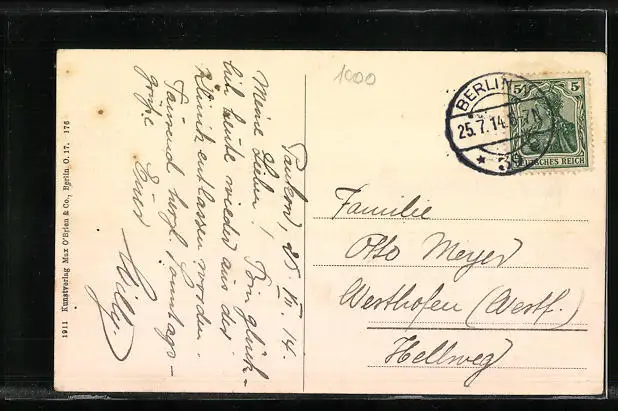 Pankow, 25. VII. 14.
Meine Lieben! Bin glück-
lich heute wieder aus der
Klinik entlassen worden.
Tausend herzl. Sonntags-
grüße Euer
Willy.
1000
BERLIN N
25.7.14. 6-7 N
* 39
5 5
DEUTSCHES REICH
Familie
Otto Meyer
Westhofen (Westf.)
Hellweg
1911 Kunstverlag Max O'Brien & Co., Berlin O. 17. 176